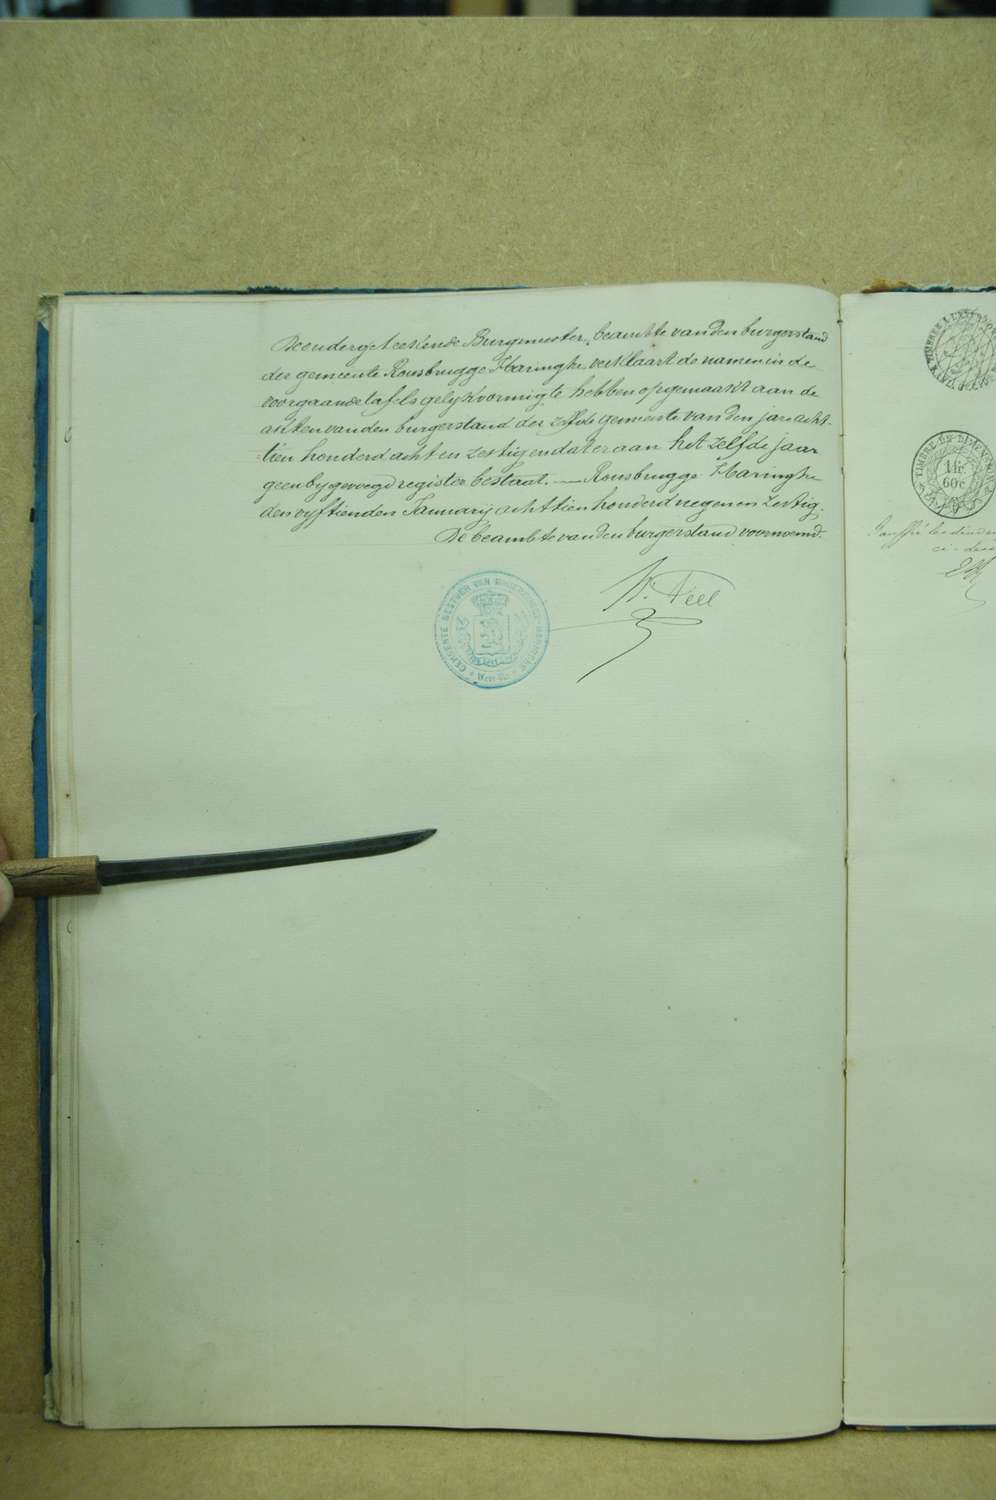 De ondergeteekende Burgmeester, beambte van den burgerstand
der gemeente Rousbrugge Haringhe, verklaart de namen in de
voorgaande tafels gelijkvormig te hebben opgemaakt aan de
akten van den burgerstand der zelfde gemeente van den jare acht-
:tien honderd acht en zestig en dat er aan het zelfde jaar
geen bygevoegd register bestaat. — Rousbrugge Haringhe
den vyftienden January acht tien honderd negen en zestig.
De beambte van den burgerstand voornoemd.
GEMEENTE BESTUUR VAN ROUSBRUGGE-HARINGHE
TIMBRE
1fr
60c
ci-dess